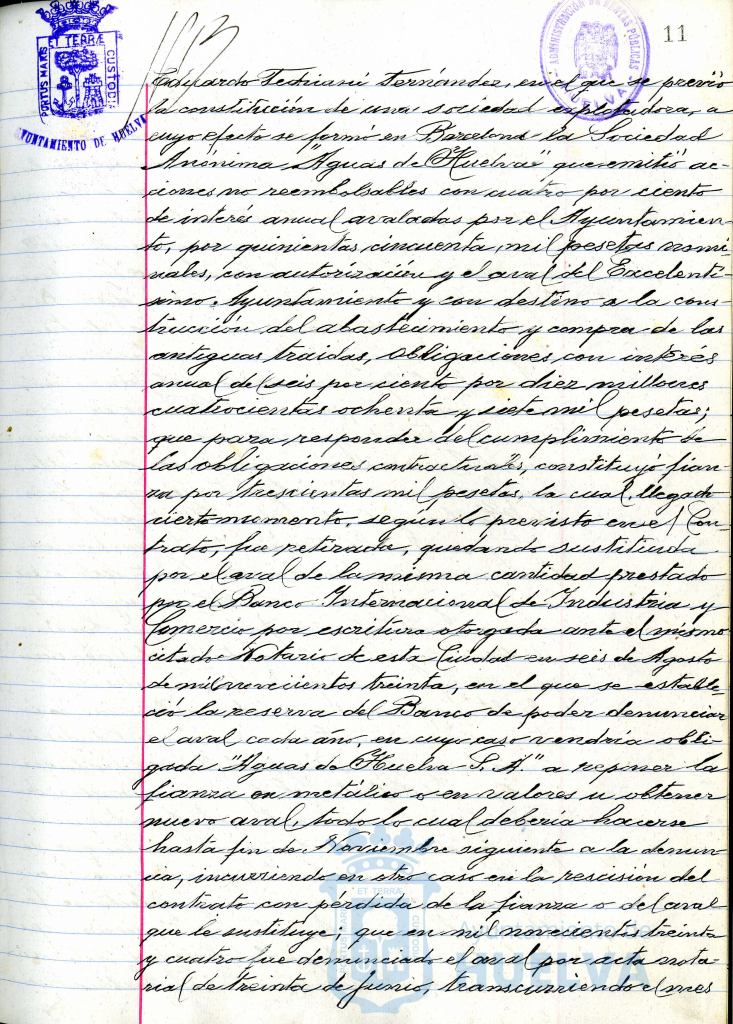 11
PORTUS MARIS ET TERRÆ CUSTODIA
AYUNTAMIENTO DE HUELVA
ADMINISTRACIÓN DE RENTAS PÚBLICAS
HUELVA
Eduardo Fedriani Fernández, en el que se previó
la constitución de una sociedad explotadora, a
cuyo efecto se formó en Barcelona la Sociedad
Anónima "Aguas de Huelva" que emitió ac-
ciones no reembolsables con cuatro por ciento
de interés anual avaladas por el Ayuntamien-
to, por quinientas cincuenta mil pesetas nomi-
nales, con autorización y el aval del Excelentí-
simo Ayuntamiento y con destino a la cons-
trucción del abastecimiento y compra de las
antiguas traidas, obligaciones, con interés
anual de seis por ciento por diez millones
cuatrocientas ochenta y siete mil pesetas;
que para responder del cumplimiento de
las obligaciones contractuales, constituyó fian-
za por trescientas mil pesetas, la cual, llegado
cierto momento, según lo previsto en el Con-
trato, fue retirada, quedando sustituida
por el aval de la misma cantidad prestado
por el Banco Internacional de Industria y
Comercio por escritura otorgada ante el mismo
citado Notario de esta Ciudad en seis de Agosto
de mil novecientos treinta, en el que se estable-
ció la reserva del Banco de poder denunciar
el aval cada año, en cuyo caso vendría obli-
gada "Aguas de Huelva S. A." a reponer la
fianza en metálico o en valores u obtener
nuevo aval, todo lo cual debería hacerse
hasta fin de Noviembre siguiente a la denun-
cia, incurriendo en otro caso en la rescisión del
contrato con pérdida de la fianza o del aval
que le sustituye; que en mil novecientos treinta
y cuatro fue denunciado el aval por acta nota-
rial de treinta de Junio, transcurriendo el mes
Ayuntamiento de
HUELVA